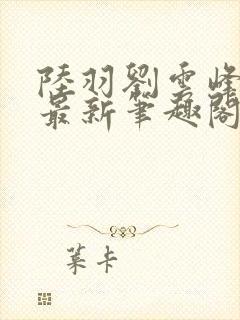 陸羽劉雲峰
最新筆趣閣
葉卡